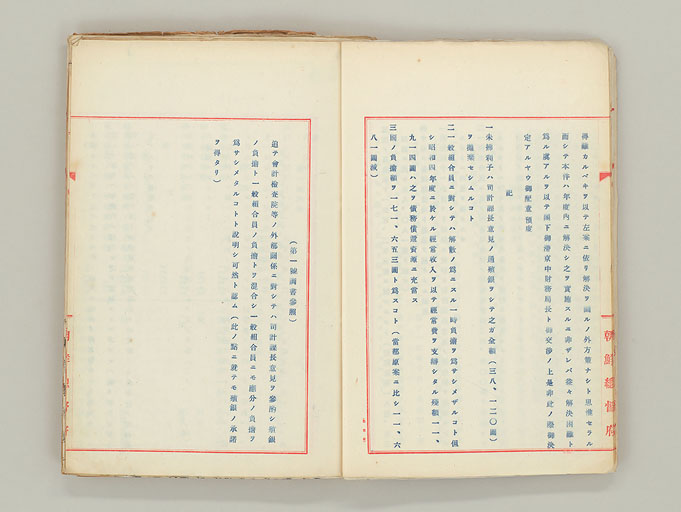 得難カルベキヲ以テ左案ニ依リ解決ヲ圖ルノ外方策ナシト思惟セラル
而シテ本件ハ年度内ニ解決シ之ヲ實施スルニ非ザレバ益々解決困難ト
爲ル虞アルヲ以テ閣下御滯京中財務局長ト御交渉ノ上是非此ノ際御決
定アルヤウ御配意預度
記
一未拂利子ハ司計課長意見ノ通殖銀ヲシテ之ガ全額(三八、一二〇圓)
ヲ抛棄セシムルコト
二一般組合員ニ對シテハ解散ノ爲ニスル一時負擔ヲ爲サシメザルコト但
シ昭和四年度ニ於ケル經常收入ヲ以テ經常費ヲ支辨シタル殘額一一、
九一四圓ハ之ヲ債務償還資源ニ充當ス
三國ノ負擔額ヲ一七一、六五三圓ト爲スコト(當部原案ニ比シ一一、六
八一圓減)
朝鮮總督府
(第一號調書參照)
追テ會計檢査院等ノ外部關係ニ對シテハ司計課長意見ヲ參酌シ殖銀
ノ負擔ト一般組合員ノ負擔トヲ混合シ一般組合員ニモ應分ノ負擔ヲ
爲サシメタルコトト說明シ可然ト認ム(此ノ點ニ就テモ殖銀ノ承諾
ヲ得タリ)